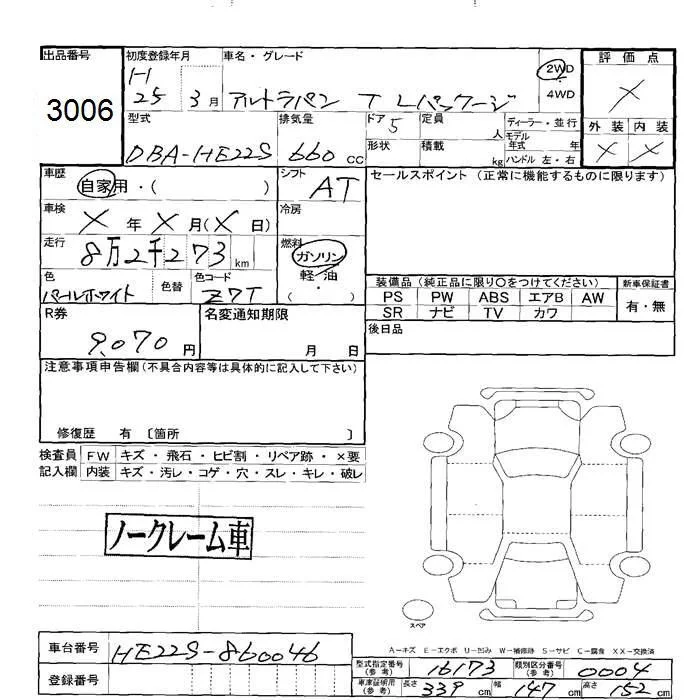 出品番号 初度登録年月 車名・グレード 評価点
3006 H 25 3月 アルトラパン T Lパッケージ 2WD 4WD X
型式 排気量 ドア 5 定員 人 ディーラー・並行 外装 内装
DBA-HE22S 660 cc 形状 積載 kg モデル 年式 年 ハンドル 左・右 X X
車歴 自家用・( ) シフト AT セールスポイント (正常に機能するものに限ります)
車検 X 年 X 月(X 日) 冷房
走行 8万2千273 km 燃料 ガソリン 軽・油 ( )
色 パールホワイト 色替 色コード Z7T 装備品 (純正品に限り○をつけてください) 新車保証書
PS PW ABS エアB AW 有・無
SR ナビ TV カワ
R券 9,070 円 名変通知期限 月 日 後日品
注意事項申告欄 (不具合内容等は具体的に記入して下さい)
修復歴 有 〔箇所 〕
検査員 FW キズ・飛石・ヒビ割・リペア跡・×要
記入欄 内装 キズ・汚レ・コゲ・穴・スレ・キレ・破レ
ノークレーム車
スペア
A-キズ E-エクボ U-凹み W-補修跡 S-サビ C-腐食 XX-交換済
車台番号 HE22S-860046
型式指定番号 (参考) 16173 類別区分番号 (参考) 0004
登録番号 車庫証明用 (参考) 長さ 339 cm 幅 147 cm 高さ 152 cm